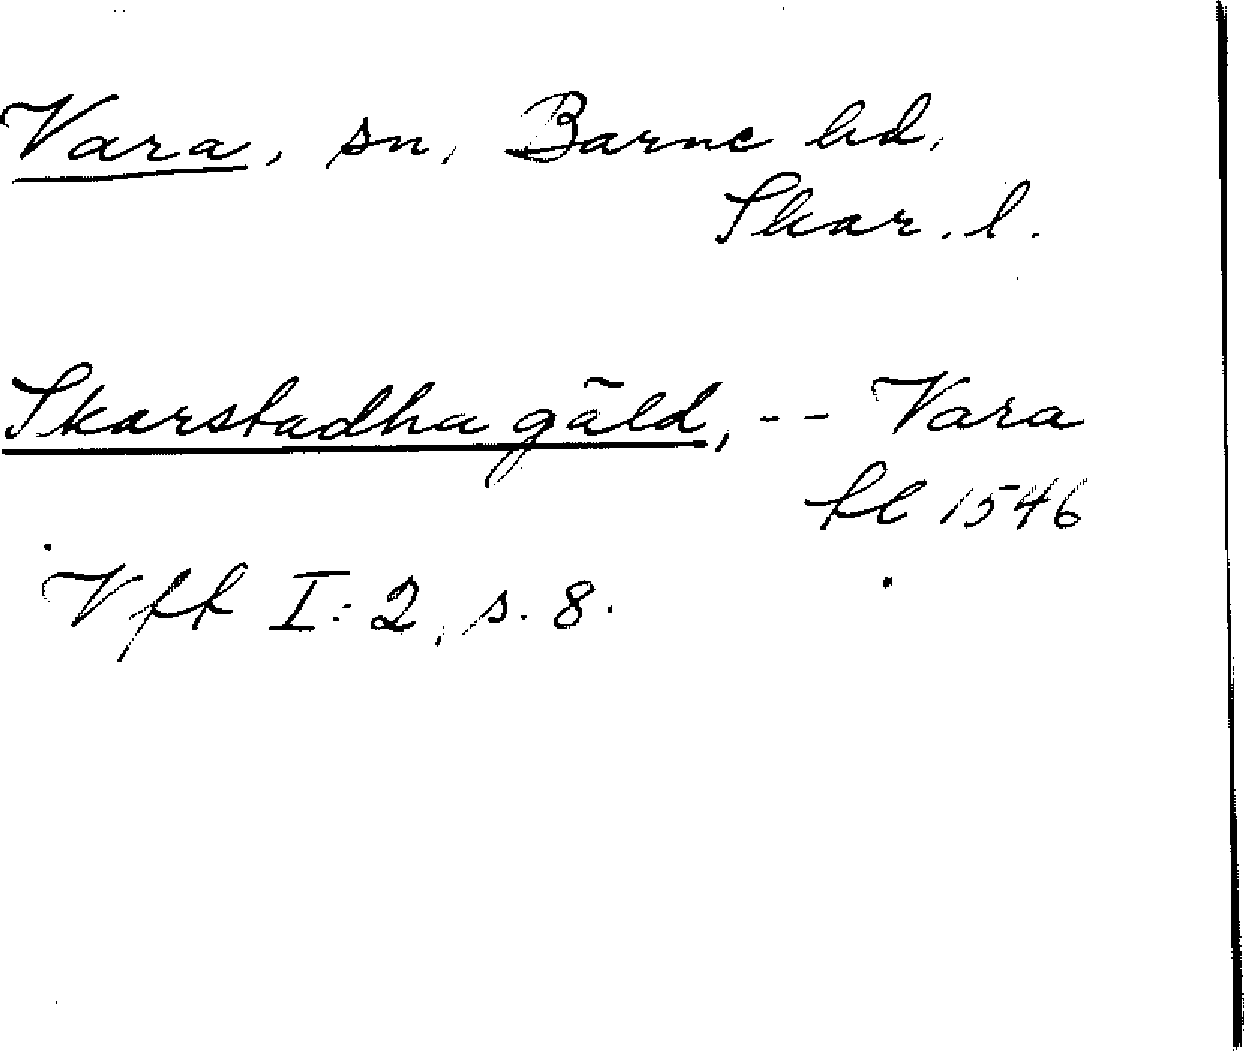 Vara, sn, Barne hd,
Skar. l.
Skarstadha gäld, -- Vara
kl 1546
Vfk I:2, s. 8.